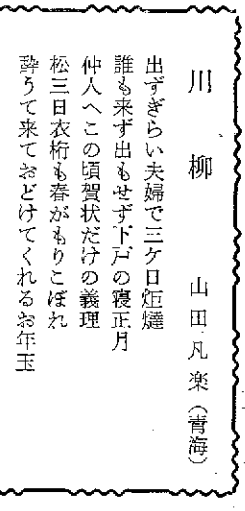 川柳　山田凡楽（青海）
出ずぎらい夫婦で三ケ日炬燵
誰も来ず出もせず下戸の寝正月
仲人へこの頃賀状だけの義理
松三日衣桁も春がもりこぼれ
酔うて来ておどけてくれるお年玉